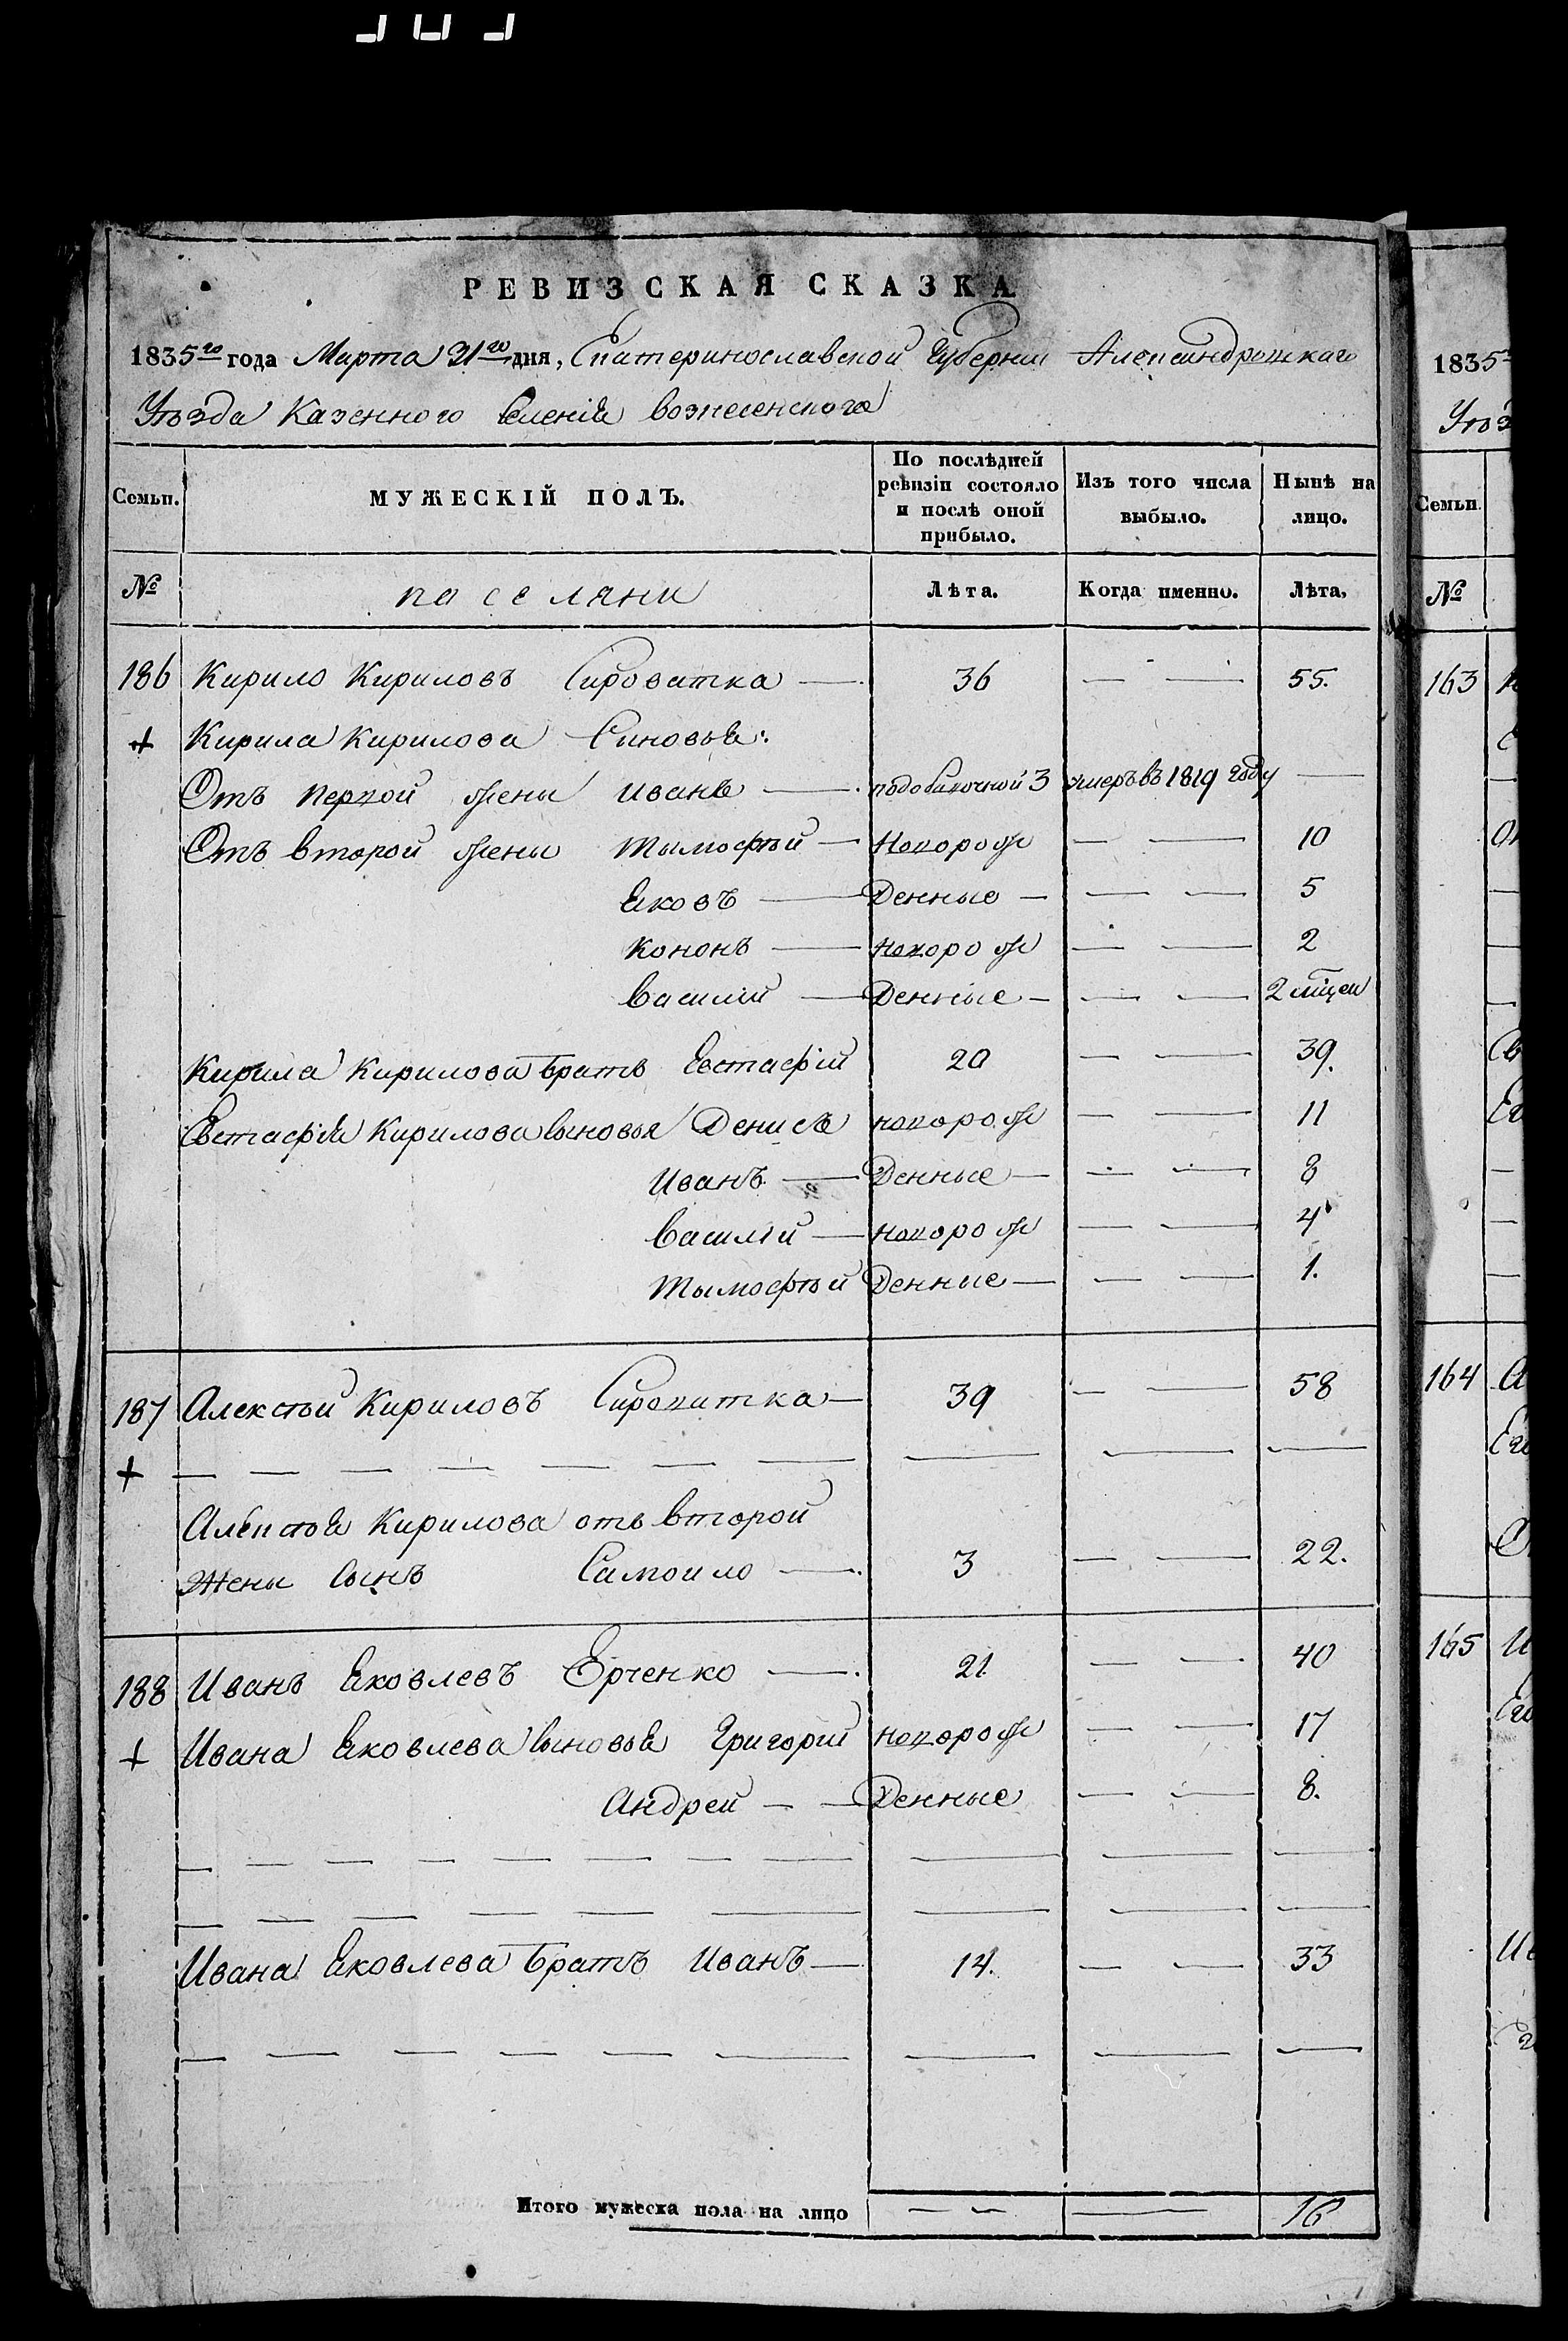 РЕВИЗСКАЯ СКАЗКА
1835го года Марта 31го дня, Екатеринославской Губернии Александровскаго
Уѣзда Казенного Селенія Вознесенского
Семьи. МУЖЕСКІЙ ПОЛЪ. По послѣдней ревизіи состояло и послѣ оной прибыло. Изъ того числа выбыло. Нынѣ на лицо.
№ поселяни Лѣта. Когда именно. Лѣта.
186 Кирило Кириловъ Сироватка — 36 — — 55.
+ Кирила Кирилова Синовья:
Отъ первой жены Иванъ — 3 умеръ въ 1819 году —
Отъ второй жены Тымофѣй — Новорож — — 10
Яковъ — Денные — — — 5
Кононъ — Новорож — — 2
Василій — Денные — — — 2 мѣцси
Кирила Кирилова братъ Евстафій 20 — — 39.
Евстафія Кирилова сыновья Денисъ новорож — — 11
Иванъ — Денные — — — 8
Василій — новорож — — 4
Тымофѣй Денные — — — 1.
187 Алексѣй Кириловъ Сироватка — 39 — — 58
+ — — — — — — — — — —
Алексѣя Кирилова отъ второй
Жены Сынъ Самоило — 3 — — 22.
188 Иванъ Яковлевъ Ерченко — 21 — — 40
+ Ивана Яковлева сыновья Григорій новорож — — 17
Андрей — — Денные — — 8.
— — — — — — — — — — —
— — — — — — — — —
Ивана Яковлева братъ Иванъ — 14. — — 33
— — — — — — — — —
Итого мужеска пола на лицо — — — 16
1835
Уѣз
Семьи.
№
163
164
165